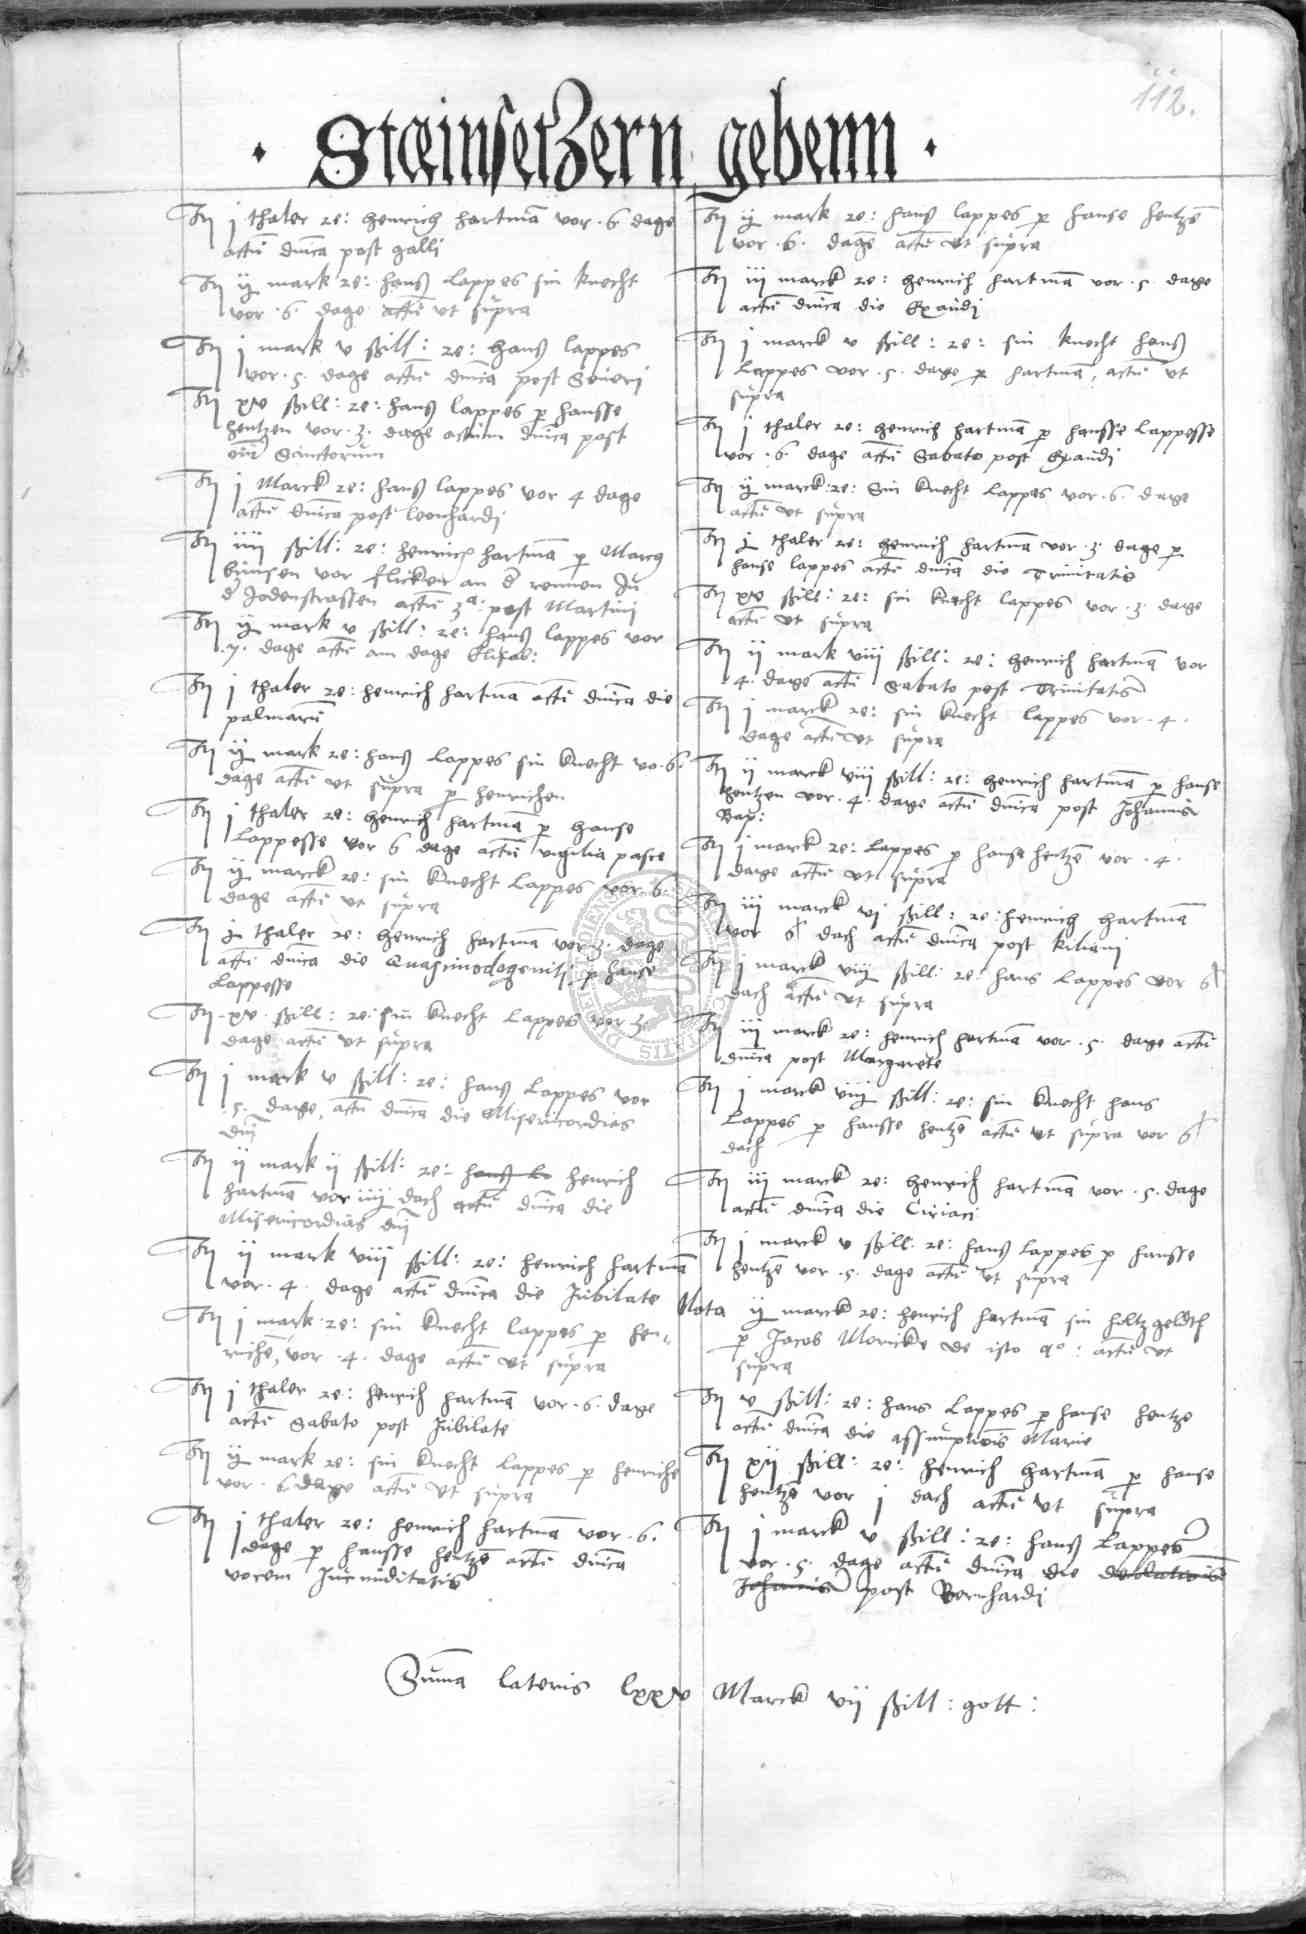 112.
· Steinsetzern gebenn ·
Itʒ j thaler re: Henrich Hartmā vor · 6 dage
actū dm̄ca post galli
Itʒ ij mark re: Hans Lappes sin knecht
vor · 6 · dage actū vt supra
Itʒ j mark v ßill: re: Hans Lappes
vor · 5 · dage actū dm̄ca post Seueri
Itʒ xv ßill: re: Hans Lappes p Hansse
Hentzen vor · 3 · dage actum dm̄ca post
oīm Sanctorum
Itʒ j Marck re: Hans Lappes vor 4 dage
actū dm̄ca post Leonhardi
Itʒ iiij ßill: re: Henrich Hartmā p Marcus
bunsen vor flicken an d̄ rennen In
d̄ Jodenstrassen actū 3ª: post Martini
Itʒ ij mark v ßill: re: Hans Lappes vor
· 7 · dage actū am dage Elisab:
Itʒ j thaler re: Henrich Hartmā actū dm̄ca die
palmarū
Itʒ ij mark re: Hans Lappes sin knecht vo · 6 ·
dage actū vt supra p Henrichen
Itʒ j thaler re: Henrich Hartmā p Hanse
Lappesse vor 6 dage actū vigilia pasce
Itʒ ij marck re: sin knecht Lappes vor 6
dage actū vt supra
Itʒ j thaler re: Henrich Hartmā vor · 3 · dage
actū dm̄ca die Quasimodogeniti p Hanse
Lappesse
Itʒ xv ßill: re: sin knecht Lappes vor 3
dage actū vt supra
Itʒ j mark v ßill: re: Hans Lappes vor
· 5 · dage, actū dm̄ca die Misericordias
dnj̄
Itʒ ij mark ij ßill: re: Hans L Henrich
Hartmā vor iiij dach actū dm̄ca die
Misericordias dnj̄
Itʒ ij mark viij ßill: re: Henrich Hartmā
vor · 4 · dage actū dm̄ca die Jubilate
Itʒ j mark re: sin knecht Lappes p Hen-
richē, vor · 4 · dage actū vt supra
Itʒ j thaler re: Henrich Hartmā vor · 6 · dage
actū Sabato post Jubilate
Itʒ ij mark re: sin knecht Lappes p Henriche
vor · 6 dage actū vt supra
Itʒ j thaler re: Henrich Hartmā vor · 6 ·
dage p Hansse Hentzē actū dm̄ca
vocem Jucunditatis
Itʒ ij mark re: Hans Lappes p Hanse Hentzē
vor · 6 · dage actū vt supra
Itʒ iij marck re: Henrich Hartmā vor · 5 · dage
actū dm̄ca die Exaudj
Itʒ j marck v ßill: re: sin knecht Hans
Lappes vor · 5 · dage p Hartmā, actū vt
supra
Itʒ j thaler re: Henrich Hartmā p Hansse Lappesse
vor · 6 · dage actū Sabato post Exaudj
Itʒ ij marck: re: Sin knecht Lappes vor · 6 · dage
actū vt supra
Itʒ j thaler re: Henrich Hartmā vor · 3 · dage p
Hanse Lappes actū dm̄ca die Trinitatis
Itʒ xv ßill: re: sin knecht Lappes vor · 3 · dage
actū vt supra
Itʒ ij mark viij ßill: re: Henrich Hartmā vor
4 · dage actū Sabato post Trinitatis
Itʒ j marck re: sin knecht Lappes vor · 4 ·
dage actū vt supra
Itʒ ij marck viij ßill: re: Henrich Hartmā p Hanse
Hentzen vor · 4 · dage actū dm̄ca post Johannis
Bap:
Itʒ j marck re: Lappes p Hanse Hentzē vor · 4 ·
dage actū vt supra
Itʒ iij marck vj ßill: re: Henrich Hartmā
vor dach actū dm̄ca post Kiliani
Itʒ j marck viij ßill: re: Hans Lappes vor
dach actū vt supra
Itʒ iij marck re: Henrich Hartmā vor · 5 · dage actū
dm̄ca post Margarete
Itʒ j marck viij ßill: re: sin knecht Hans
Lappes p Hansse Hentzē actū vt supra vor
dach
Itʒ iij marck re: Henrich Hartmā vor · 5 · dage
actū dm̄ca die Ciriaci
Itʒ j marck v ßill: re: Hans Lappes p Hansse
Hentzē vor · 5 · dage actū vt supra
Nota ij marck re: Henrich Hartmā sin holtzgeldth
p Jacob Moricke de isto aº: actū vt
supra
Itʒ v ßill: re: Hans Lappes p Hanse Hentze
actū dm̄ca die assumptiōis Marie
Itʒ xij ßill: re: Henrich Hartmā p Hanse
Hentzē vor j dach actū vt supra
Itʒ j marck v ßill: re: Hans Lappes
vor · 5 · dage actū dm̄ca die decollatiōis
Johannis post Bernhardi
Sum̄a lateris lxxv Marck vij ßill: gott: